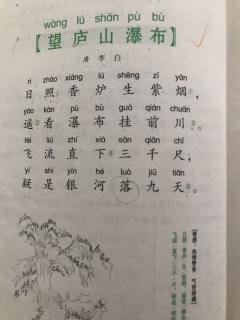 wàng lú shān pù bù
【望庐山瀑布】
唐 李白
rì zhào xiāng lú shēng zǐ yān
日照香炉生紫烟，
yáo kàn pù bù guà qián chuān
遥看瀑布挂前川。
fēi liú zhí xià sān qiān chǐ
飞流直下三千尺，
yí shì yín hé luò jiǔ tiān
疑是银河落九天。